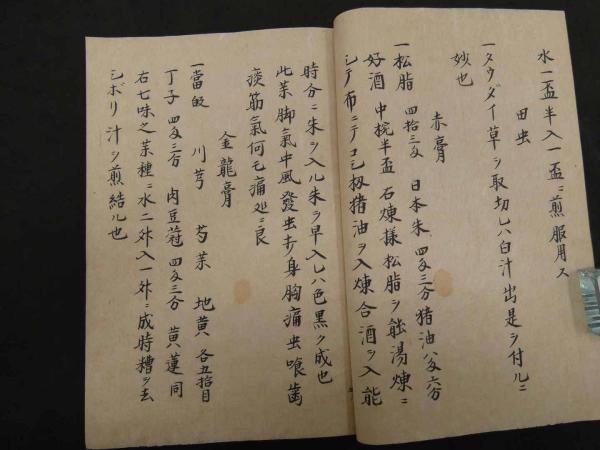 水一盃半入一盃ニ煎服用ス
田虫
一タウダイ草ヲ取切レハ白汁出是ヲ付ルニ
妙也
赤膏
一松脂 四拾三匁 日本朱 四匁三分 猪油 八匁六分
好酒 中椀半盃 右煉様松脂ヲ能湯煉ニ
シテ布ニテコシ扨猪油ヲ入煉合酒ヲ入能
時分ニ朱ヲ入ル朱ヲ早入レハ色黒ク成也
此薬脚氣中風發虫赤身胸痛虫喰歯
痰筋氣何モ痛処ニ良
金龍膏
一當皈 川芎 芍薬 地黄 各五拾目
丁子 四匁三分 肉豆蔻 四匁三分 黄蓮 同
右七味之薬種ニ水二舛入一舛ニ成時糟ヲ去
シボリ汁ヲ煎結ル也